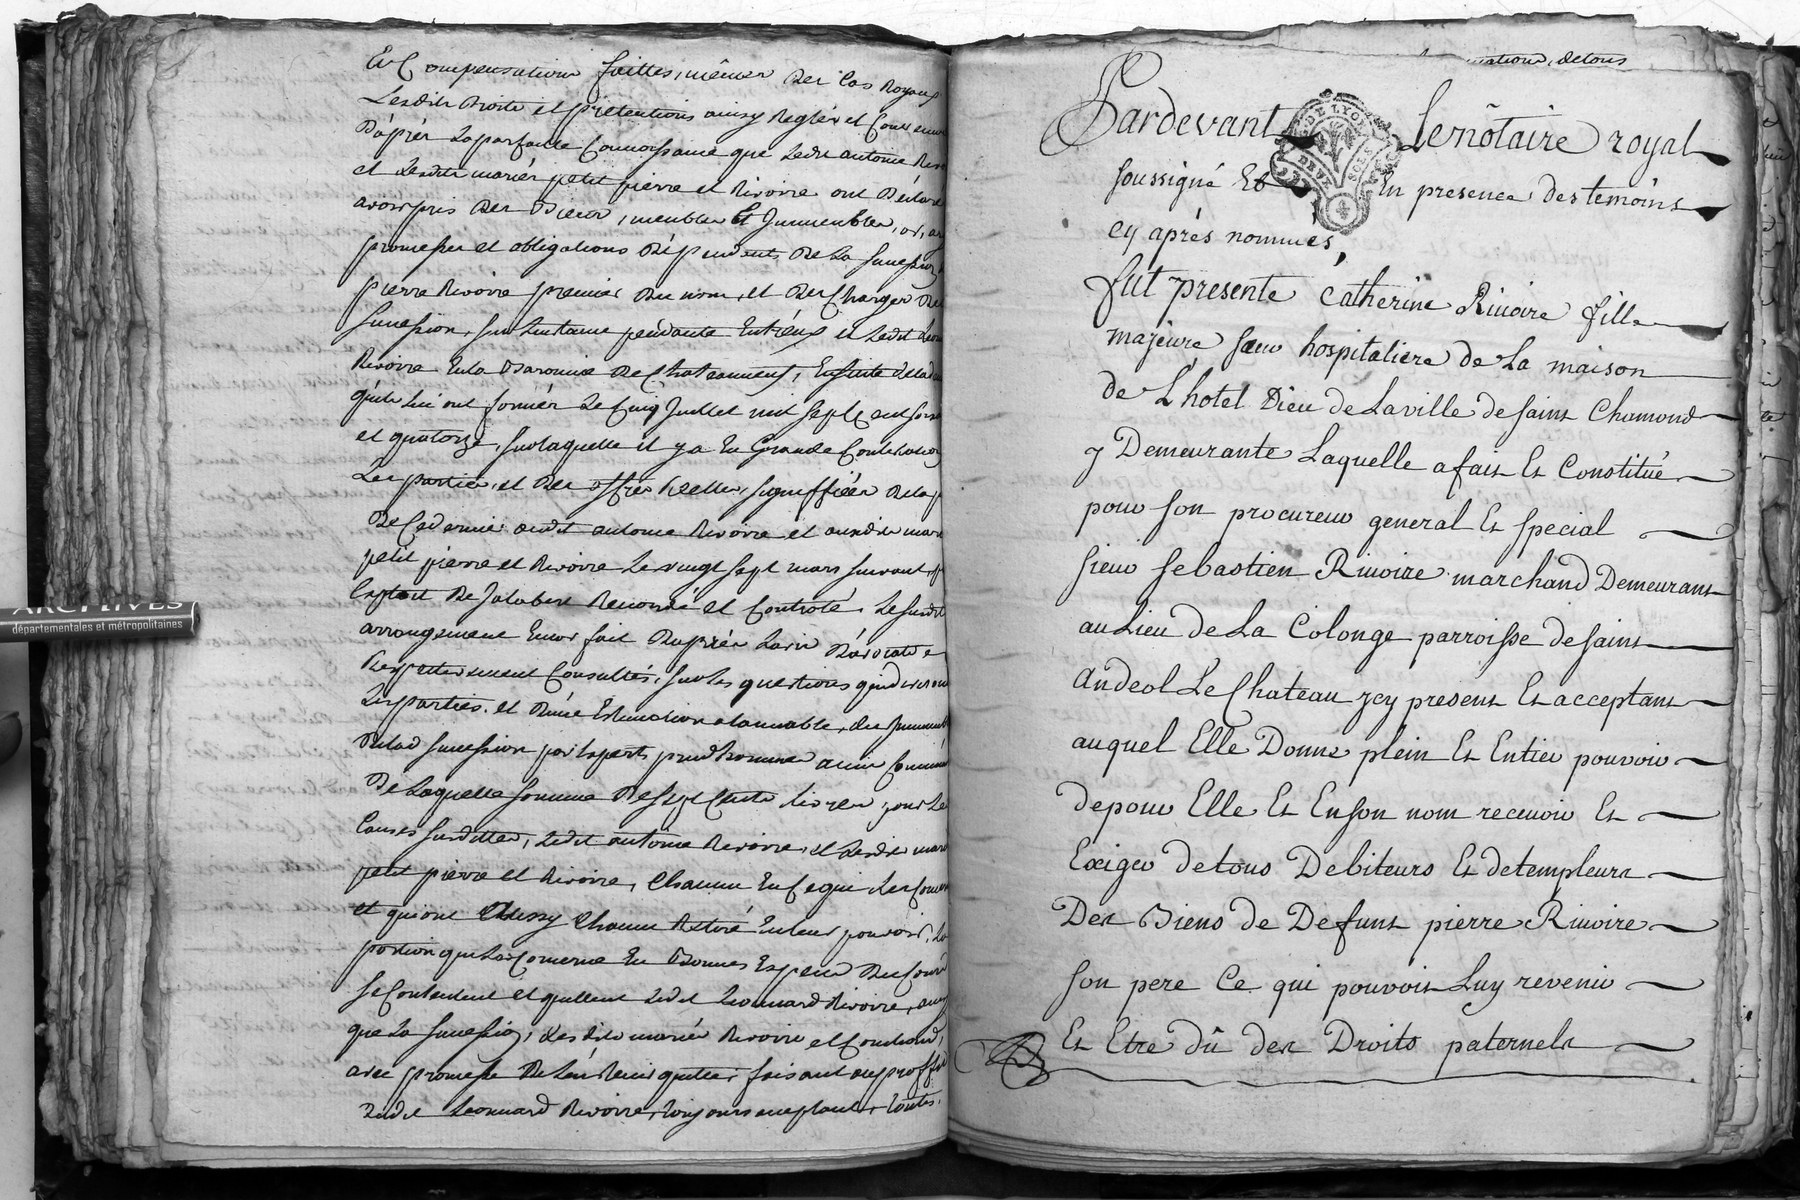 Et Compensations faittes, mêmes des Cas Royaux
Lesdits Droits et prétentions ainsy Reglés et Convenus
D'après La parfaite Connoissance que Ledit antoine
et Lesdits mariés petit pierre et Rivoire ont Déclaré
avoir pris des Biens, meubles Et Immeubles, or,
promesses et obligations Dépendents De La Succession
pierre Rivoire premier du nom, et des Charges De
Succession, sur Linstance pendante Entréux et Ledit
Rivoire En la Baronnie De Chateauneuf, Ensuite
qu'ils Lui ont formér Le Cinq Juillet mil Sept Cent
et quatorze, sur laquelle il y a Eu Grande Contestation
Les parties, et des offres Réelles, signiffiées
audit antoine Rivoire et auxdits
petit pierre et Rivoire Le vingt sept mars suivant
Exploit De Jalabert et Controlé. Le susdit
arrangement Encor fait D'après Lavis D'avocats
Respectivement Consultés, sur Les questions qui divisoient
Les parties, et Estimation, des Immeubles
De lad succession par Experts prud'hommes
De Laquelle somme De sept Cents Livres, pour Les
Causes susdittes, Ledit antoine Rivoire, et Lesdits mariés
petit pierre et Rivoire, Chacun En Ce qui Les Concerne
et qui ont Chacun Retiré En leur pouvoir, La
portion qui Les Concerne En Bonnes Espèces Du Cours
se Contentent et quittent Ledit Leonnard Rivoire, ainsy
que La Succession, Lesdits mariés Rivoire et
avec promesse De Lén faire quitter, faisant au proffit
Ledit Leonnard Rivoire, toujours acceptant, toutes
detous
Pardevant Le nôtaire royal
DE LYON
DEUX SOLS
soussigné Et En presence des temoins
cy aprés nommés
fut presente Catherine Rivoire fille
majeure sœur hospitaliere de La maison
de L'hotel Dieu de La ville de saint Chamond
y Demeurante Laquelle a fait Et Constitué
pour son procureur general Et special
sieur sebastien Rivoire marchand Demeurant
au Lieu de La Colonge parroisse de saint
andeol Le Chateau jcy present Et acceptant
auquel Elle Donne plein Et Entier pouvoir
de pour Elle Et En son nom recevoir Et
Exiger de tous Debiteurs Et detempteurs
Des Biens de Defunt pierre Rivoire
son pere Ce qui pouvoit Luy revenir
Et Etre dû des Droits paternels
ARCHIVES
départementales et métropolitaines